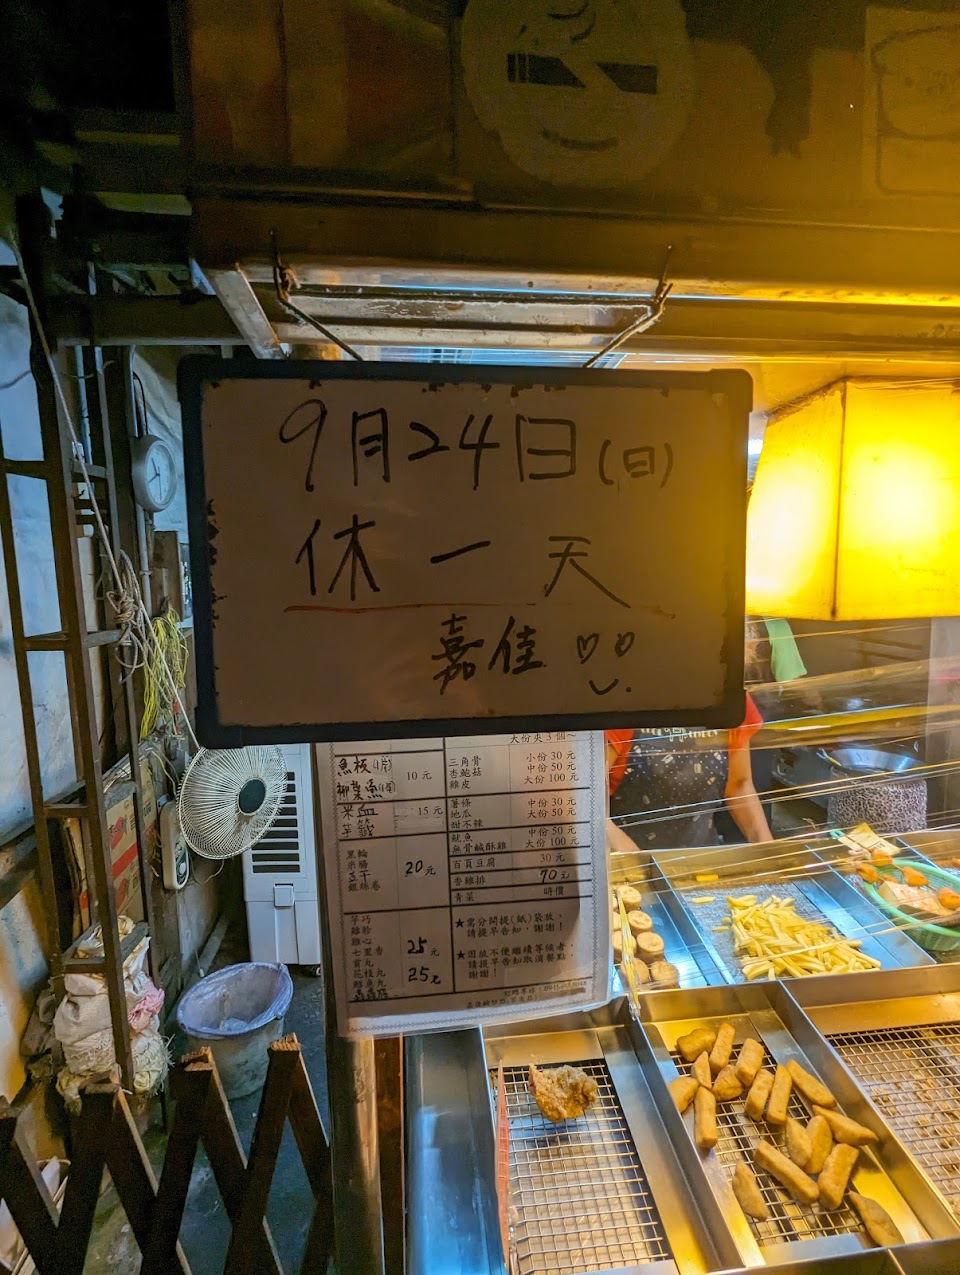 9月24日(日)
休一天
嘉佳
大份夾3個~
魚板(1片)
柳葉魚
10元
米血
芋籤
15元
黑輪
米腸
豆干
銀絲卷
20元
芋巧
雞肫
雞心
七里香
貢丸
花枝丸
鱈魚丸
25元
25元
三角骨
杏鮑菇
雞皮
小份 30 元
中份 50 元
大份 100 元
薯條
地瓜
甜不辣
中份 30 元
大份 50 元
魷魚
無骨鹹酥雞
中份 50 元
大份 100 元
百頁豆腐
30 元
香雞排
70元
青菜
時價
★需分開提(紙)袋放、
請提早告知,謝謝!
★因故不便繼續等候者,
請提早告知取消餐點,
謝謝!